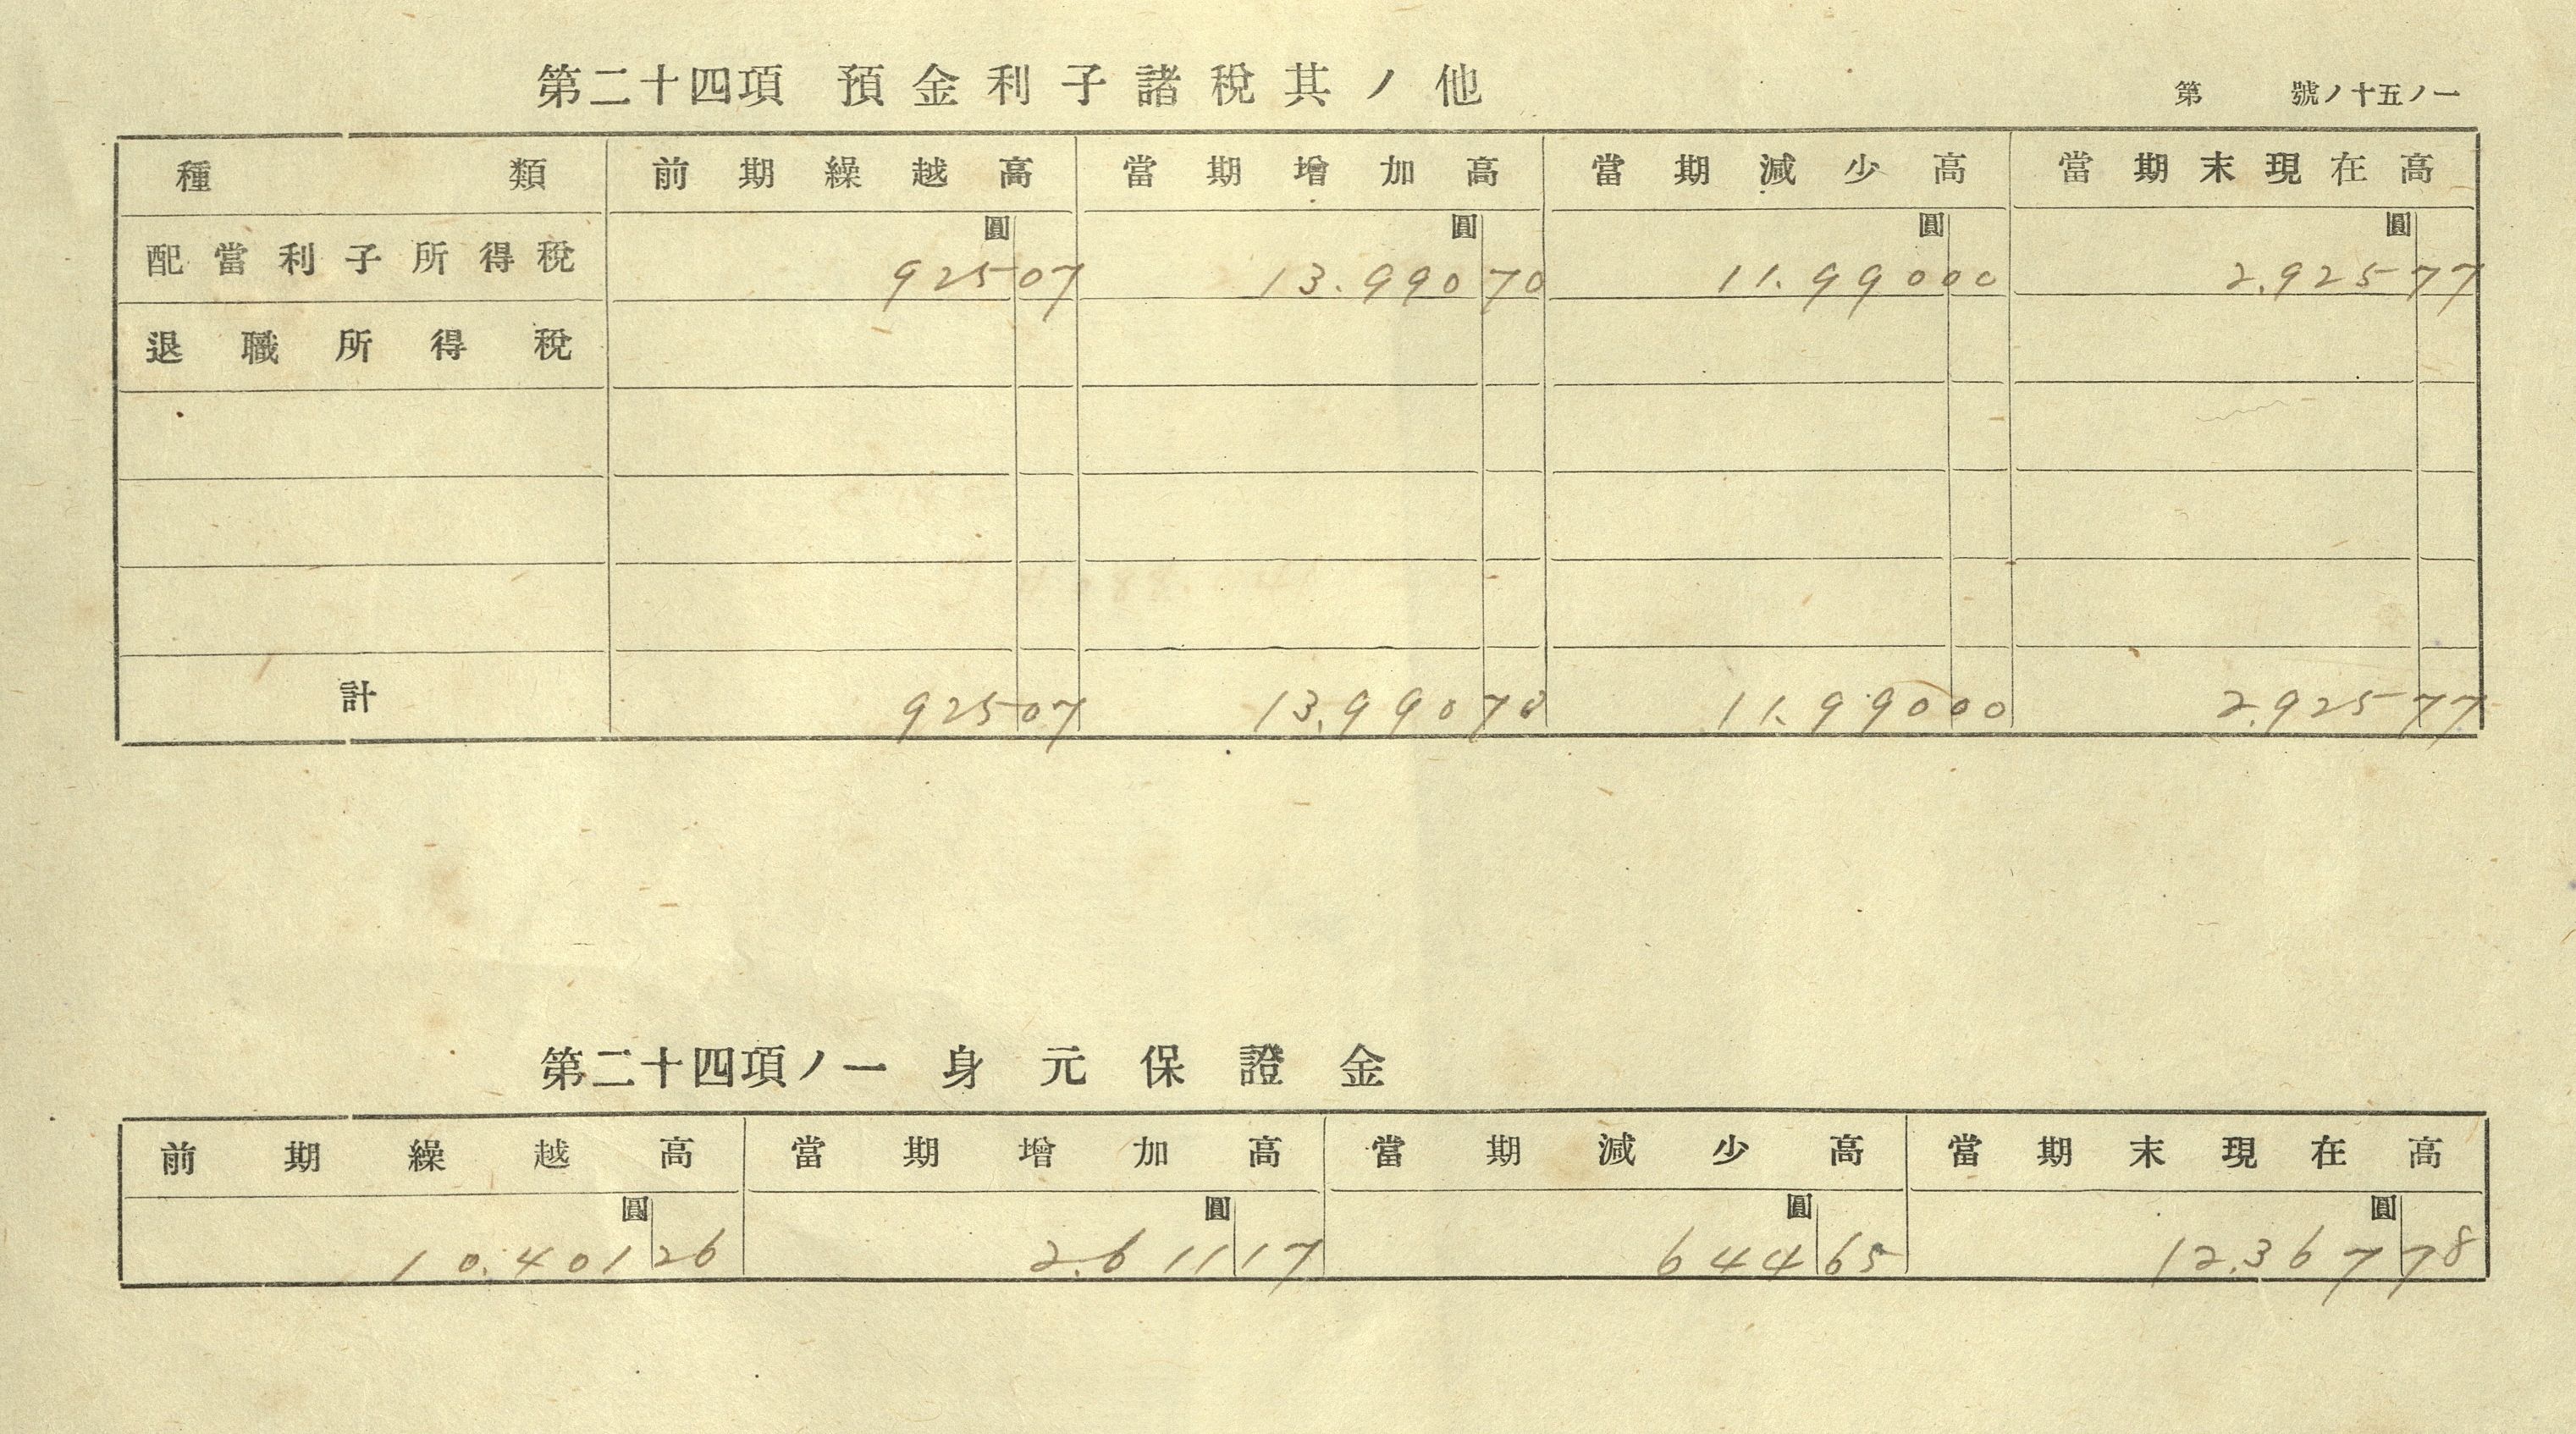 第二十四項 預金利子諸稅其ノ他
第 號ノ十五ノ一
種類 前期繰越高 當期增加高 當期減少高 當期末現在高
圓 圓 圓 圓
配當利子所得稅 925 07 13.990 70 11.990 00 2.925 77
退職所得稅
計 925 07 13.990 70 11.990 00 2.925 77
第二十四項ノ一 身元保證金
前期繰越高 當期增加高 當期減少高 當期末現在高
圓 圓 圓 圓
10.401 26 2.611 17 644 65 12.367 78